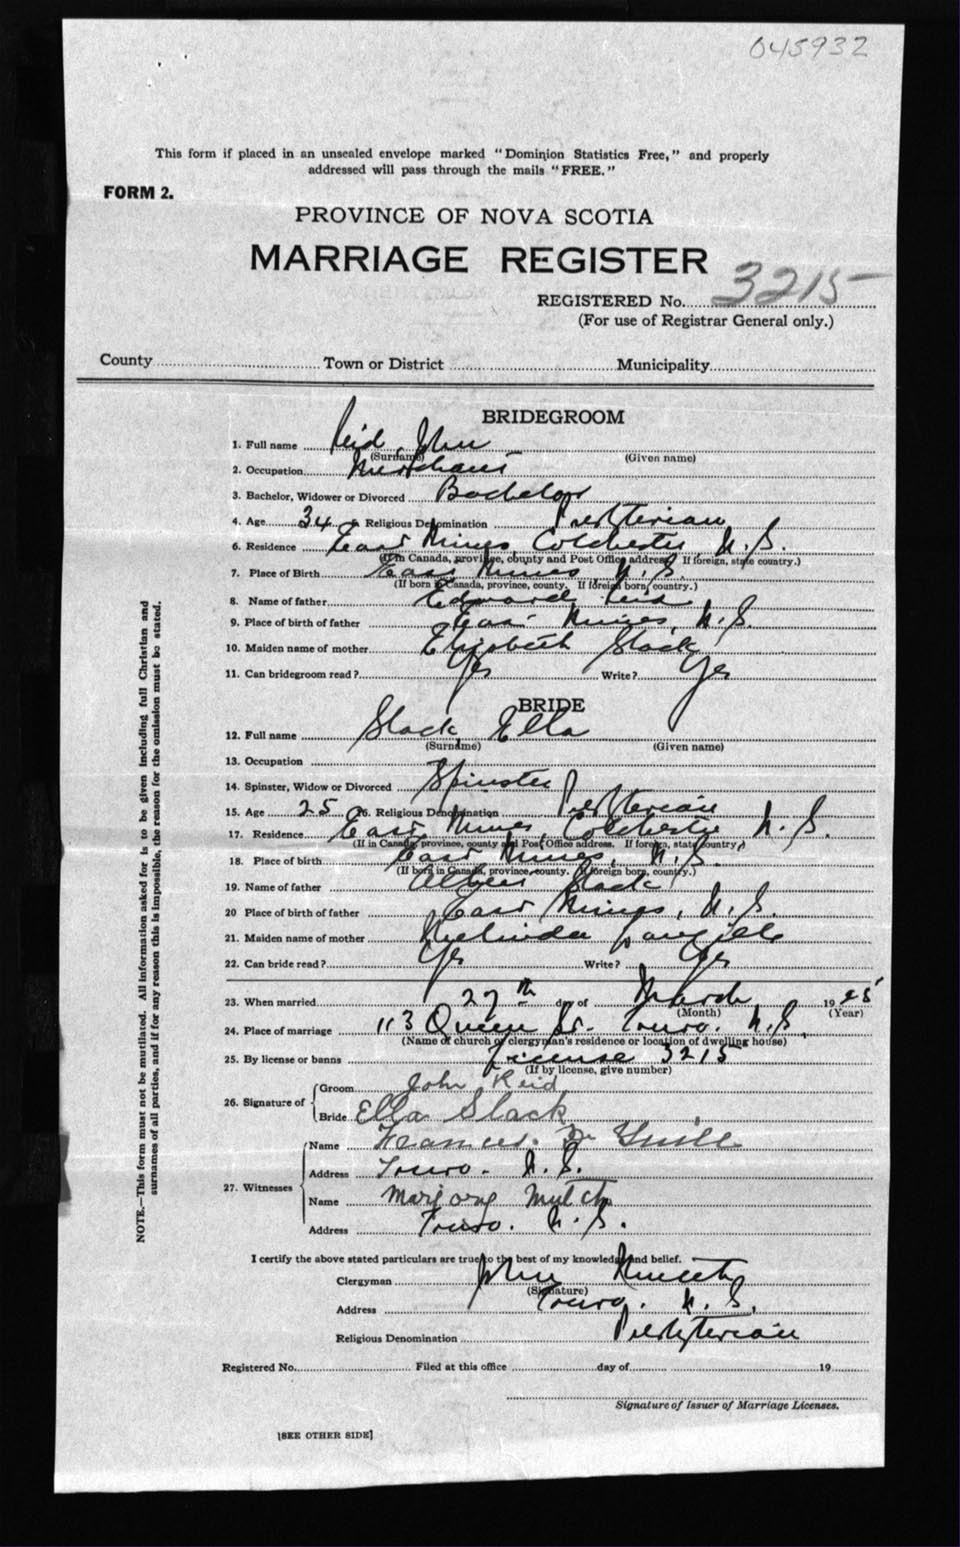 045932
This form if placed in an unsealed envelope marked "Dominion Statistics Free," and properly
addressed will pass through the mails "FREE."
FORM 2.
PROVINCE OF NOVA SCOTIA
MARRIAGE REGISTER
REGISTERED No. 3215
(For use of Registrar General only.)
County Town or District Municipality
BRIDEGROOM
1. Full name Reid, John
(Surname) (Given name)
2. Occupation Merchant
3. Bachelor, Widower or Divorced Bachelor
4. Age 34 Religious Denomination Presbyterian
6. Residence East Mines Colchester N.S.
(If in Canada, province, county and Post Office address. If foreign, state country.)
7. Place of Birth East Mines N.S.
(If born in Canada, province, county. If foreign born, country.)
8. Name of father Edward Reid
9. Place of birth of father East Mines, N.S.
10. Maiden name of mother Elizabeth Slack
11. Can bridegroom read? Yes Write? Yes
BRIDE
12. Full name Slack, Ella
(Surname) (Given name)
13. Occupation
14. Spinster, Widow or Divorced Spinster
15. Age 25 16. Religious Denomination Presbyterian
17. Residence East Mines, Colchester N.S.
(If in Canada, province, county and Post Office address. If foreign, state country)
18. Place of birth East Mines, N.S.
(If born in Canada, province, county. If foreign born, country.)
19. Name of father Slack
20 Place of birth of father East Mines, N.S.
21. Maiden name of mother Melinda
22. Can bride read? Yes Write? Yes
23. When married 27th day of March 1925
(Month) (Year)
24. Place of marriage 113 Queen St. Truro. N.S.
(Name of church or clergyman's residence or location of dwelling house)
25. By license or banns License 3215
(If by license, give number)
26. Signature of Groom John Reid
Bride Ella Slack
27. Witnesses Name Frances
Address Truro. N.S.
Name Marjory Mutch
Address Truro. N.S.
I certify the above stated particulars are true to the best of my knowledge and belief.
Clergyman John
(Signature)
Address Truro. N.S.
Religious Denomination Presbyterian
Registered No. Filed at this office day of 19
Signature of Issuer of Marriage Licenses.
[SEE OTHER SIDE]
NOTE.—This form must not be mutilated. All information asked for is to be given including full Christian and
surnames of all parties, and if for any reason this is impossible, the reason for the omission must be stated.